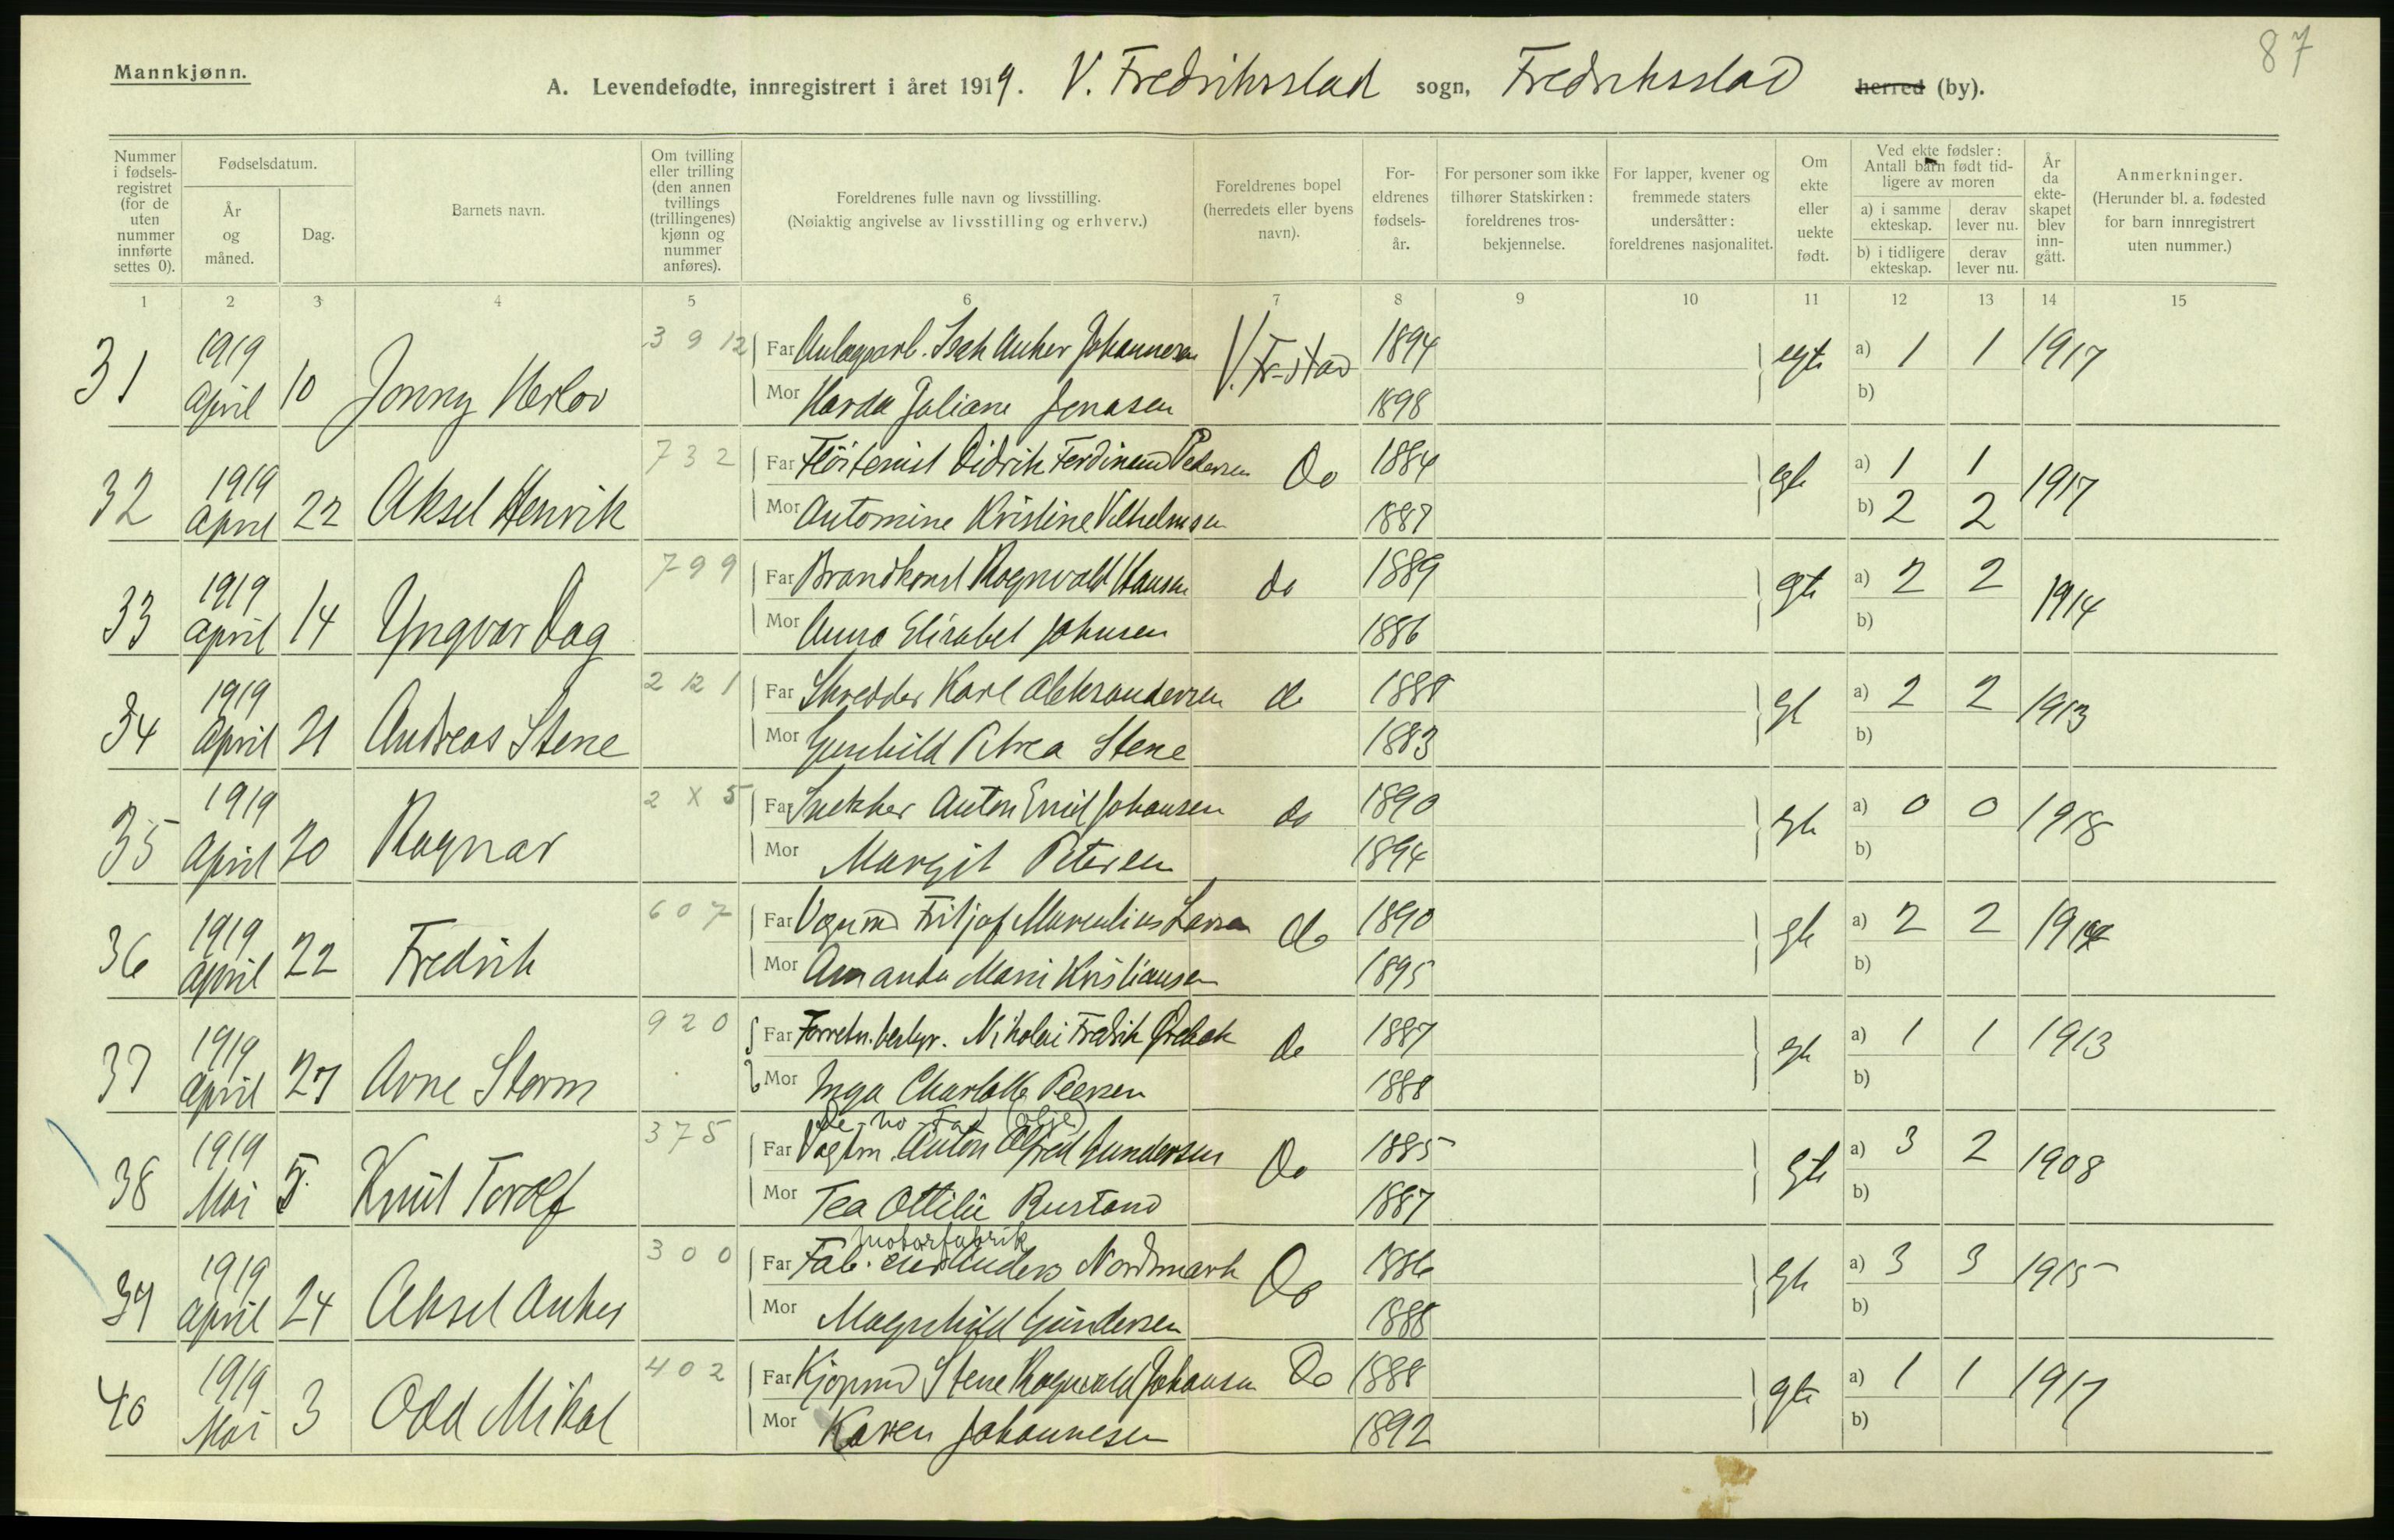 87
Mannkjønn.
A. Levendefødte, innregistrert i året 1919. V. Fredriksstad sogn, Fredriksstad herred (by).
Nummer i fødsels-registret (for de uten nummer innførte settes 0).
Fødselsdatum.
År og måned.
Dag.
Barnets navn.
Om tvilling eller trilling (den annen tvillings (trillingenes) kjønn og nummer anføres).
Foreldrenes fulle navn og livsstilling.
(Nøiaktig angivelse av livsstilling og erhverv.)
Foreldrenes bopel (herredets eller byens navn).
For-eldrenes fødsels-år.
For personer som ikke tilhører Statskirken: foreldrenes tros-bekjennelse.
For lapper, kvener og fremmede staters undersåtter: foreldrenes nasjonalitet.
Om ekte eller uekte født.
Ved ekte fødsler: Antall barn født tid-ligere av moren
a) i samme ekteskap.
derav lever nu.
b) i tidligere ekteskap.
derav lever nu.
År da ekte-skapet blev inn-gått.
Anmerkninger.
(Herunder bl. a. fødested for barn innregistrert uten nummer.)
1 2 3 4 5 6 7 8 9 10 11 12 13 14 15
31 1919 April 10 Jonny Herlov 3 9 12 Far Anlægsarb. Isak Anker Johannesen V. Fr-stad 1894 egte a) 1 1 1917
Mor Harda Juliane Jonasen 1898 b)
32 1919 April 22 Aksel Henrik 7 3 2 Far Didrik Ferdinand Pedersen Do 1884 egte a) 1 1 1917
Mor Antomine Kristine Vilhelmsen 1887 b) 2 2
33 1919 April 14 Yngvar Dag 7 9 9 Far Brandkonst Ragnvald Hansen do 1889 egte a) 2 2 1914
Mor Anna Elisabet Johnsen 1886 b)
34 1919 April 21 Andreas Stene 2 12 1 Far Skredder Karl Aleksandersen do 1888 egte a) 2 2 1913
Mor Gunhild Petrea Stene 1883 b)
35 1919 April 20 Ragnar 2 X 5 Far Snekker Anton Emil Johansen do 1890 egte a) 0 0 1918
Mor Margit Petersen 1894 b)
36 1919 April 22 Fredrik 6 0 7 Far Vognmd Fritjof Marculius Larsen do 1890 egte a) 2 2
Mor Amanda Marie Kristiansen 1895 b)
37 1919 April 27 Arne Storm 9 2 0 Far Forretn.bestyr. Nikolai Fredrik do 1887 egte a) 1 1 1913
Mor Inga Charlotte Peersen 1888 b)
De-no-Fa (olje)
38 1919 Mai 5 Knut Torolf 3 7 5 Far Vagtm. Anton Alfred Gundersen Do 1885 egte a) 3 2 1908
Mor Tea Ottilie Rustand 1887 b)
motorfabrik
39 1919 April 24 Aksel Anker 3 0 0 Far Fab. Anders Nordmark Do 1886 egte a) 3 3 1915
Mor Magnhild Gundersen 1888 b)
40 1919 Mai 3 Odd Mikal 4 0 2 Far Kjøpmd Stene Ragnvald Johansen Do 1888 egte a) 1 1 1917
Mor Karen Johannesen 1892 b)